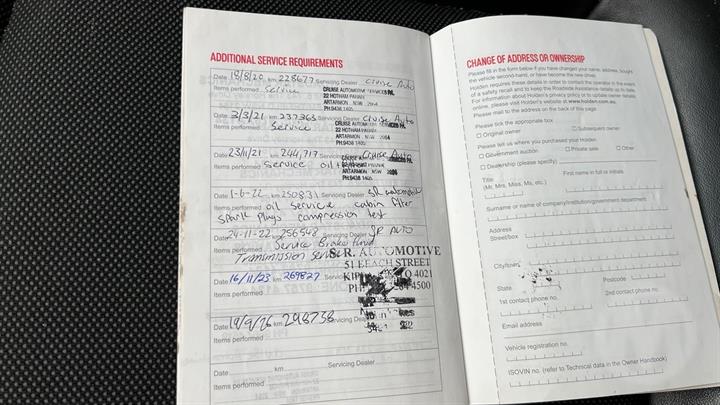 ADDITIONAL SERVICE REQUIREMENTS
Date 18/8/20 km 228677 Servicing Dealer Cruise Auto
Items performed Service
CRUISE AUTOMOTIVE SERVICES P/L
22 HOTHAM PARADE
ARTARMON NSW 2064
PH:9438 1405
Date 3/3/21 km 237365 Servicing Dealer Cruise Auto
Items performed Service
CRUISE AUTOMOTIVE SERVICES P/L
22 HOTHAM PARADE
ARTARMON NSW 2064
PH:9438 1405
Date 23/11/21 km 244,717 Servicing Dealer Cruise Auto
Items performed Service oil
ARTARMON NSW
PH:9438 1405
Date 1-6-22 km 250831 Servicing Dealer SR automotive
Items performed oil service cabin filter
spark plugs compression test
Date 24-11-22 km 256548 Servicing Dealer SR AUTO
Items performed Service Brake fluid
Transmission service
S.R. AUTOMOTIVE
51 BEACH STREET
Q 4021
PH 4500
Date 16/11/23 km 269827 Servicing
Items performed
Date km 298738 Servicing Dealer
Items performed
Date km Servicing Dealer
Items performed
CHANGE OF ADDRESS OR OWNERSHIP
Please fill in the form below if you have changed your name, address, bought
the vehicle second-hand, or have become the new driver.
Holden requires these details in order to contact the operator in the event
of a safety recall and to keep the Roadside Assistance details up to date.
For information about Holden's privacy policy or to update owner details
online, please visit Holden's website at www.holden.com.au.
Please mail to the address on the back of this page.
Please tick the appropriate box
Original owner Subsequent owner
Please tell us where you purchased your Holden:
Government auction Private sale Other
Dealership (please specify)
Title First name in full or initials
(Mr, Mrs, Miss, Ms, etc.)
Surname or name of company/institution/government department
Address
Street/box
City/town
State Postcode
1st contact phone no. 2nd contact phone no.
Email address
Vehicle registration no.
ISOVIN no. (refer to Technical data in the Owner Handbook)